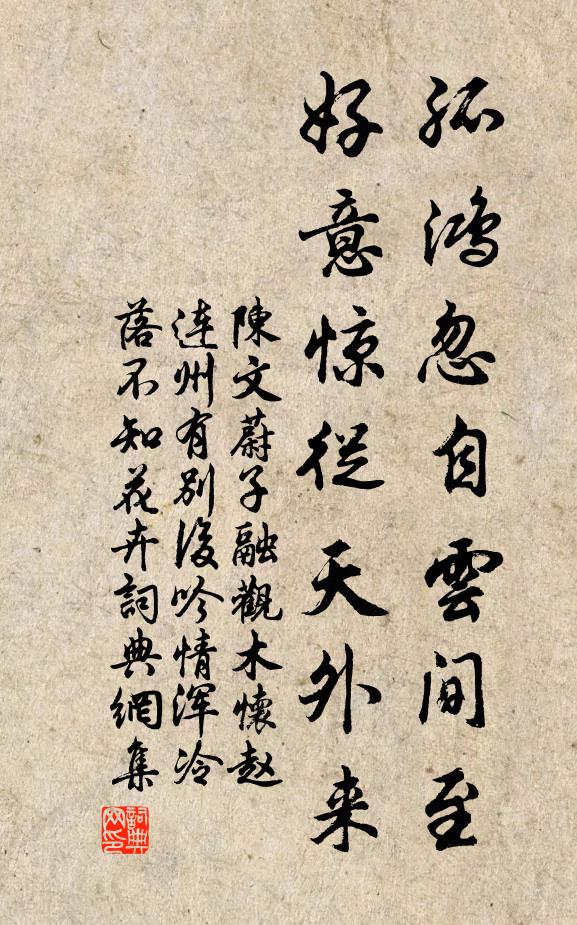 孤鸿忽自雲间至
好意惊從天外来
陳文蔚子融觀木懷赵
连州有别後吟情浑冷
落不知花卉詞典網集
詞典
网印